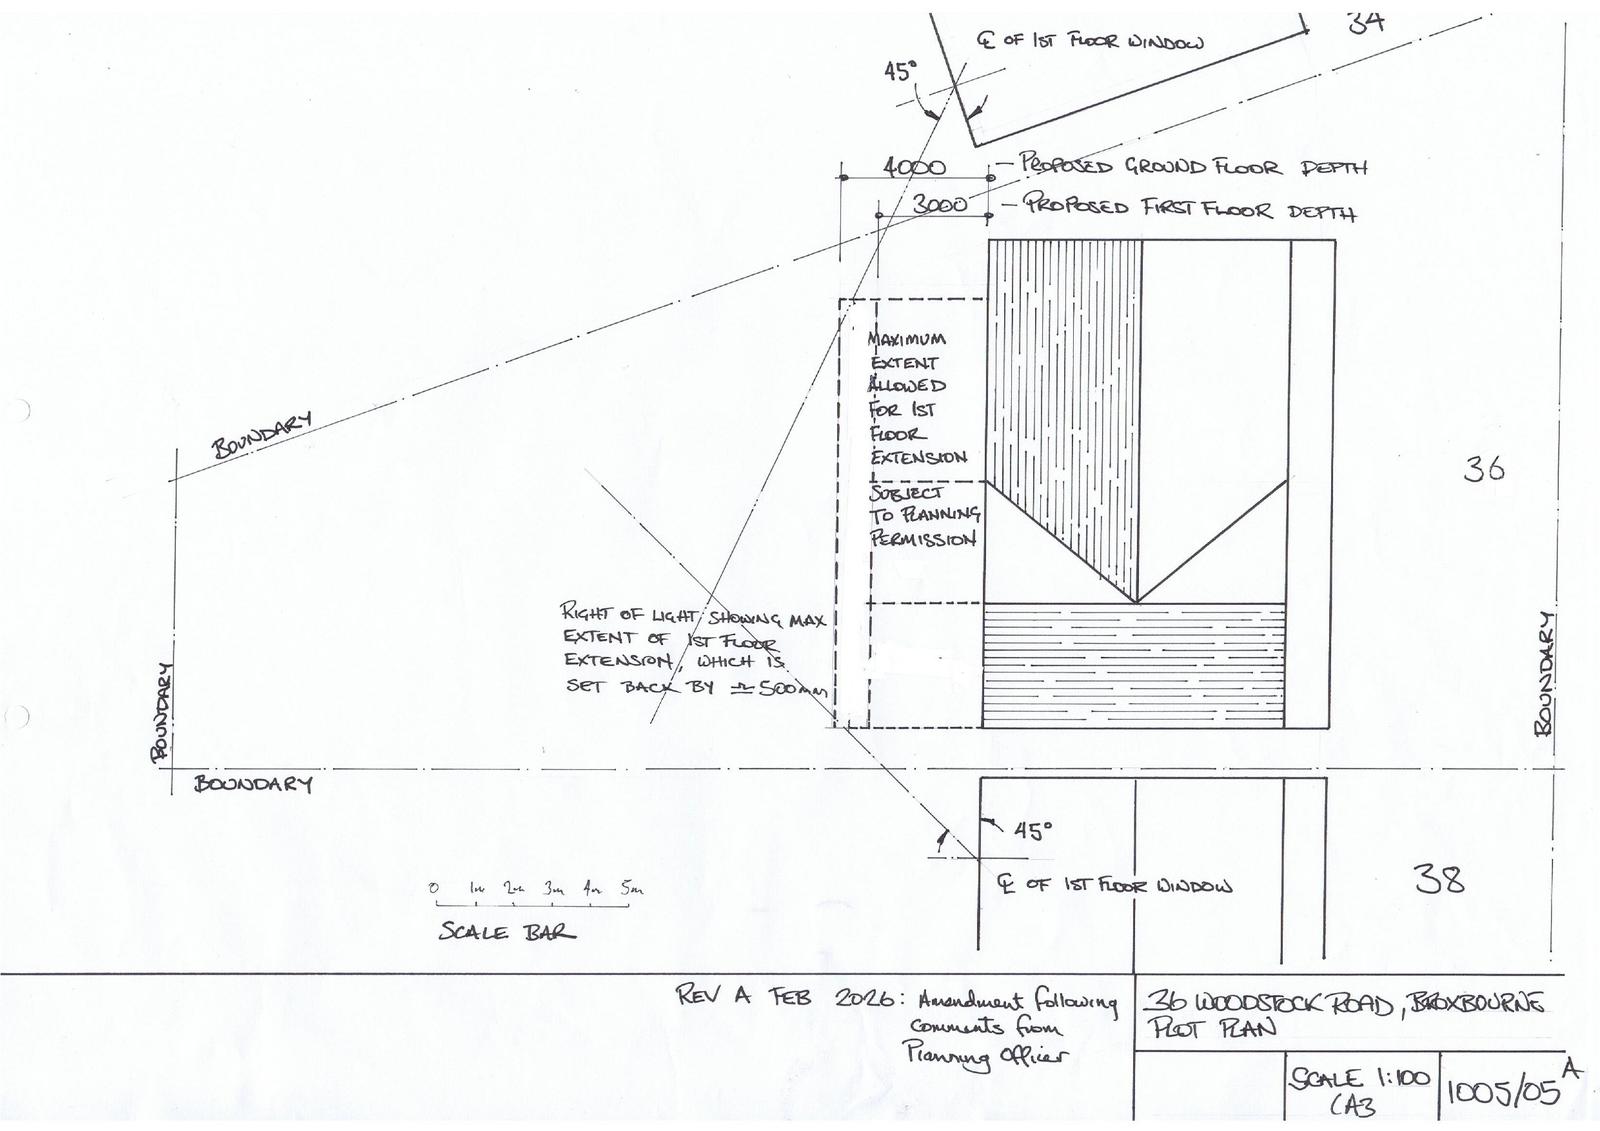 34
℄ OF 1ST FLOOR WINDOW
45°
4000 - PROPOSED GROUND FLOOR DEPTH
3000 - PROPOSED FIRST FLOOR DEPTH
MAXIMUM
EXTENT
ALLOWED
FOR 1ST
FLOOR
EXTENSION
SUBJECT
TO PLANNING
PERMISSION
BOUNDARY
36
RIGHT OF LIGHT SHOWING MAX
EXTENT OF 1ST FLOOR
EXTENSION, WHICH IS
SET BACK BY ≃ 500mm
BOUNDARY
BOUNDARY
BOUNDARY
45°
℄ OF 1ST FLOOR WINDOW
38
0 1m 2m 3m 4m 5m
SCALE BAR
REV A FEB 2026: Amendment following
comments from
Planning Officer
36 WOODSTOCK ROAD, BROXBOURNE
PLOT PLAN
SCALE 1:100
(A3
1005/05 A